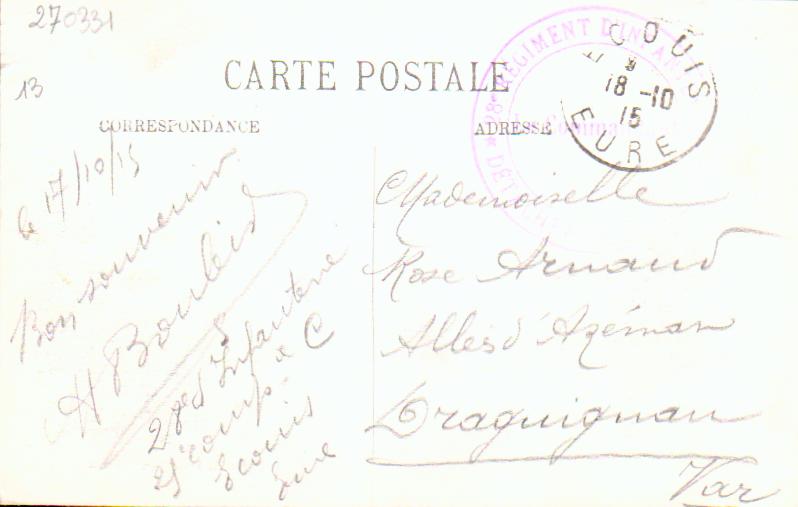 270331
13
CARTE POSTALE
CORRESPONDANCE
ADRESSE
28e RÉGIMENT D'INFAN
Le Comma
ECOUIS
18 -10
15
EURE
le 17/10/15
Bon souvenir
H Boulei
28e d'Infanterie
25e Comp. C
Ecouis
Eure
Mademoiselle
Rose Arnaud
Allées d'Azémar
Draguignan
Var